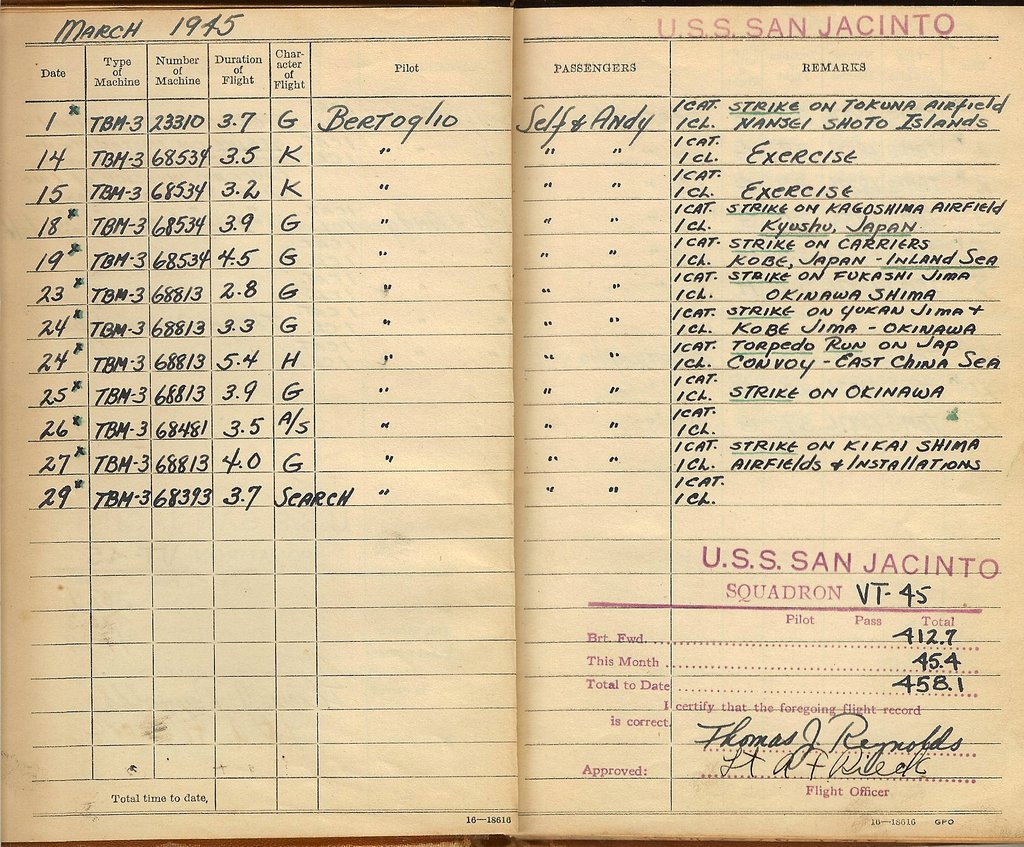 MARCH 1945
U.S.S. SAN JACINTO
Date Type of Machine Number of Machine Duration of Flight Char- acter of Flight Pilot PASSENGERS REMARKS
1* TBM-3 23310 3.7 G BERTOGLIO Self & ANDY 1 CAT. STRIKE ON TOKUNA AIRfIELD
1 CL. NANSEI SHOTO ISLANDS
14 TBM-3 68534 3.5 K " " " 1 CAT.
1 CL. EXERCISE
15 TBM-3 68534 3.2 K " " " 1 CAT.
1 CL. EXERCISE
18* TBM-3 68534 3.9 G " " " 1 CAT. STRIKE ON KAGOSHIMA AIRFIELD
1 CL. KYUSHU, JAPAN
19* TBM-3 68534 4.5 G " " " 1 CAT. STRIKE ON CARRIERS
1 CL. KOBE, JAPAN - INLAND SEA
23* TBM-3 68813 2.8 G " " " 1 CAT. STRIKE ON FUKASHI JIMA
1 CL. OKINAWA SHIMA
24* TBM-3 68813 3.3 G " " " 1 CAT. STRIKE ON YUKAN JIMA +
1 CL. KOBE JIMA - OKINAWA
24* TBM-3 68813 5.4 H " " " 1 CAT. TORPEDO RUN ON JAP
1 CL. CONVOY - EAST CHINA SEA
25* TBM-3 68813 3.9 G " " " 1 CAT.
1 CL. STRIKE ON OKINAWA
26* TBM-3 68481 3.5 A/S " " " 1 CAT.
1 CL.
27* TBM-3 68813 4.0 G " " " 1 CAT. STRIKE ON KIKAI SHIMA
1 CL. AIRFIELDS & INSTALLATIONS
29* TBM-3 68393 3.7 SEARCH " " " 1 CAT.
1 CL.
U.S.S. SAN JACINTO
SQUADRON VT-45
Pilot Pass Total
Brt. Fwd. 412.7
This Month 45.4
Total to Date 458.1
I certify that the foregoing flight record
is correct.
Thomas J. Reynolds
Approved: Lt
Flight Officer
Total time to date,
16—18616
16—18616 GPO